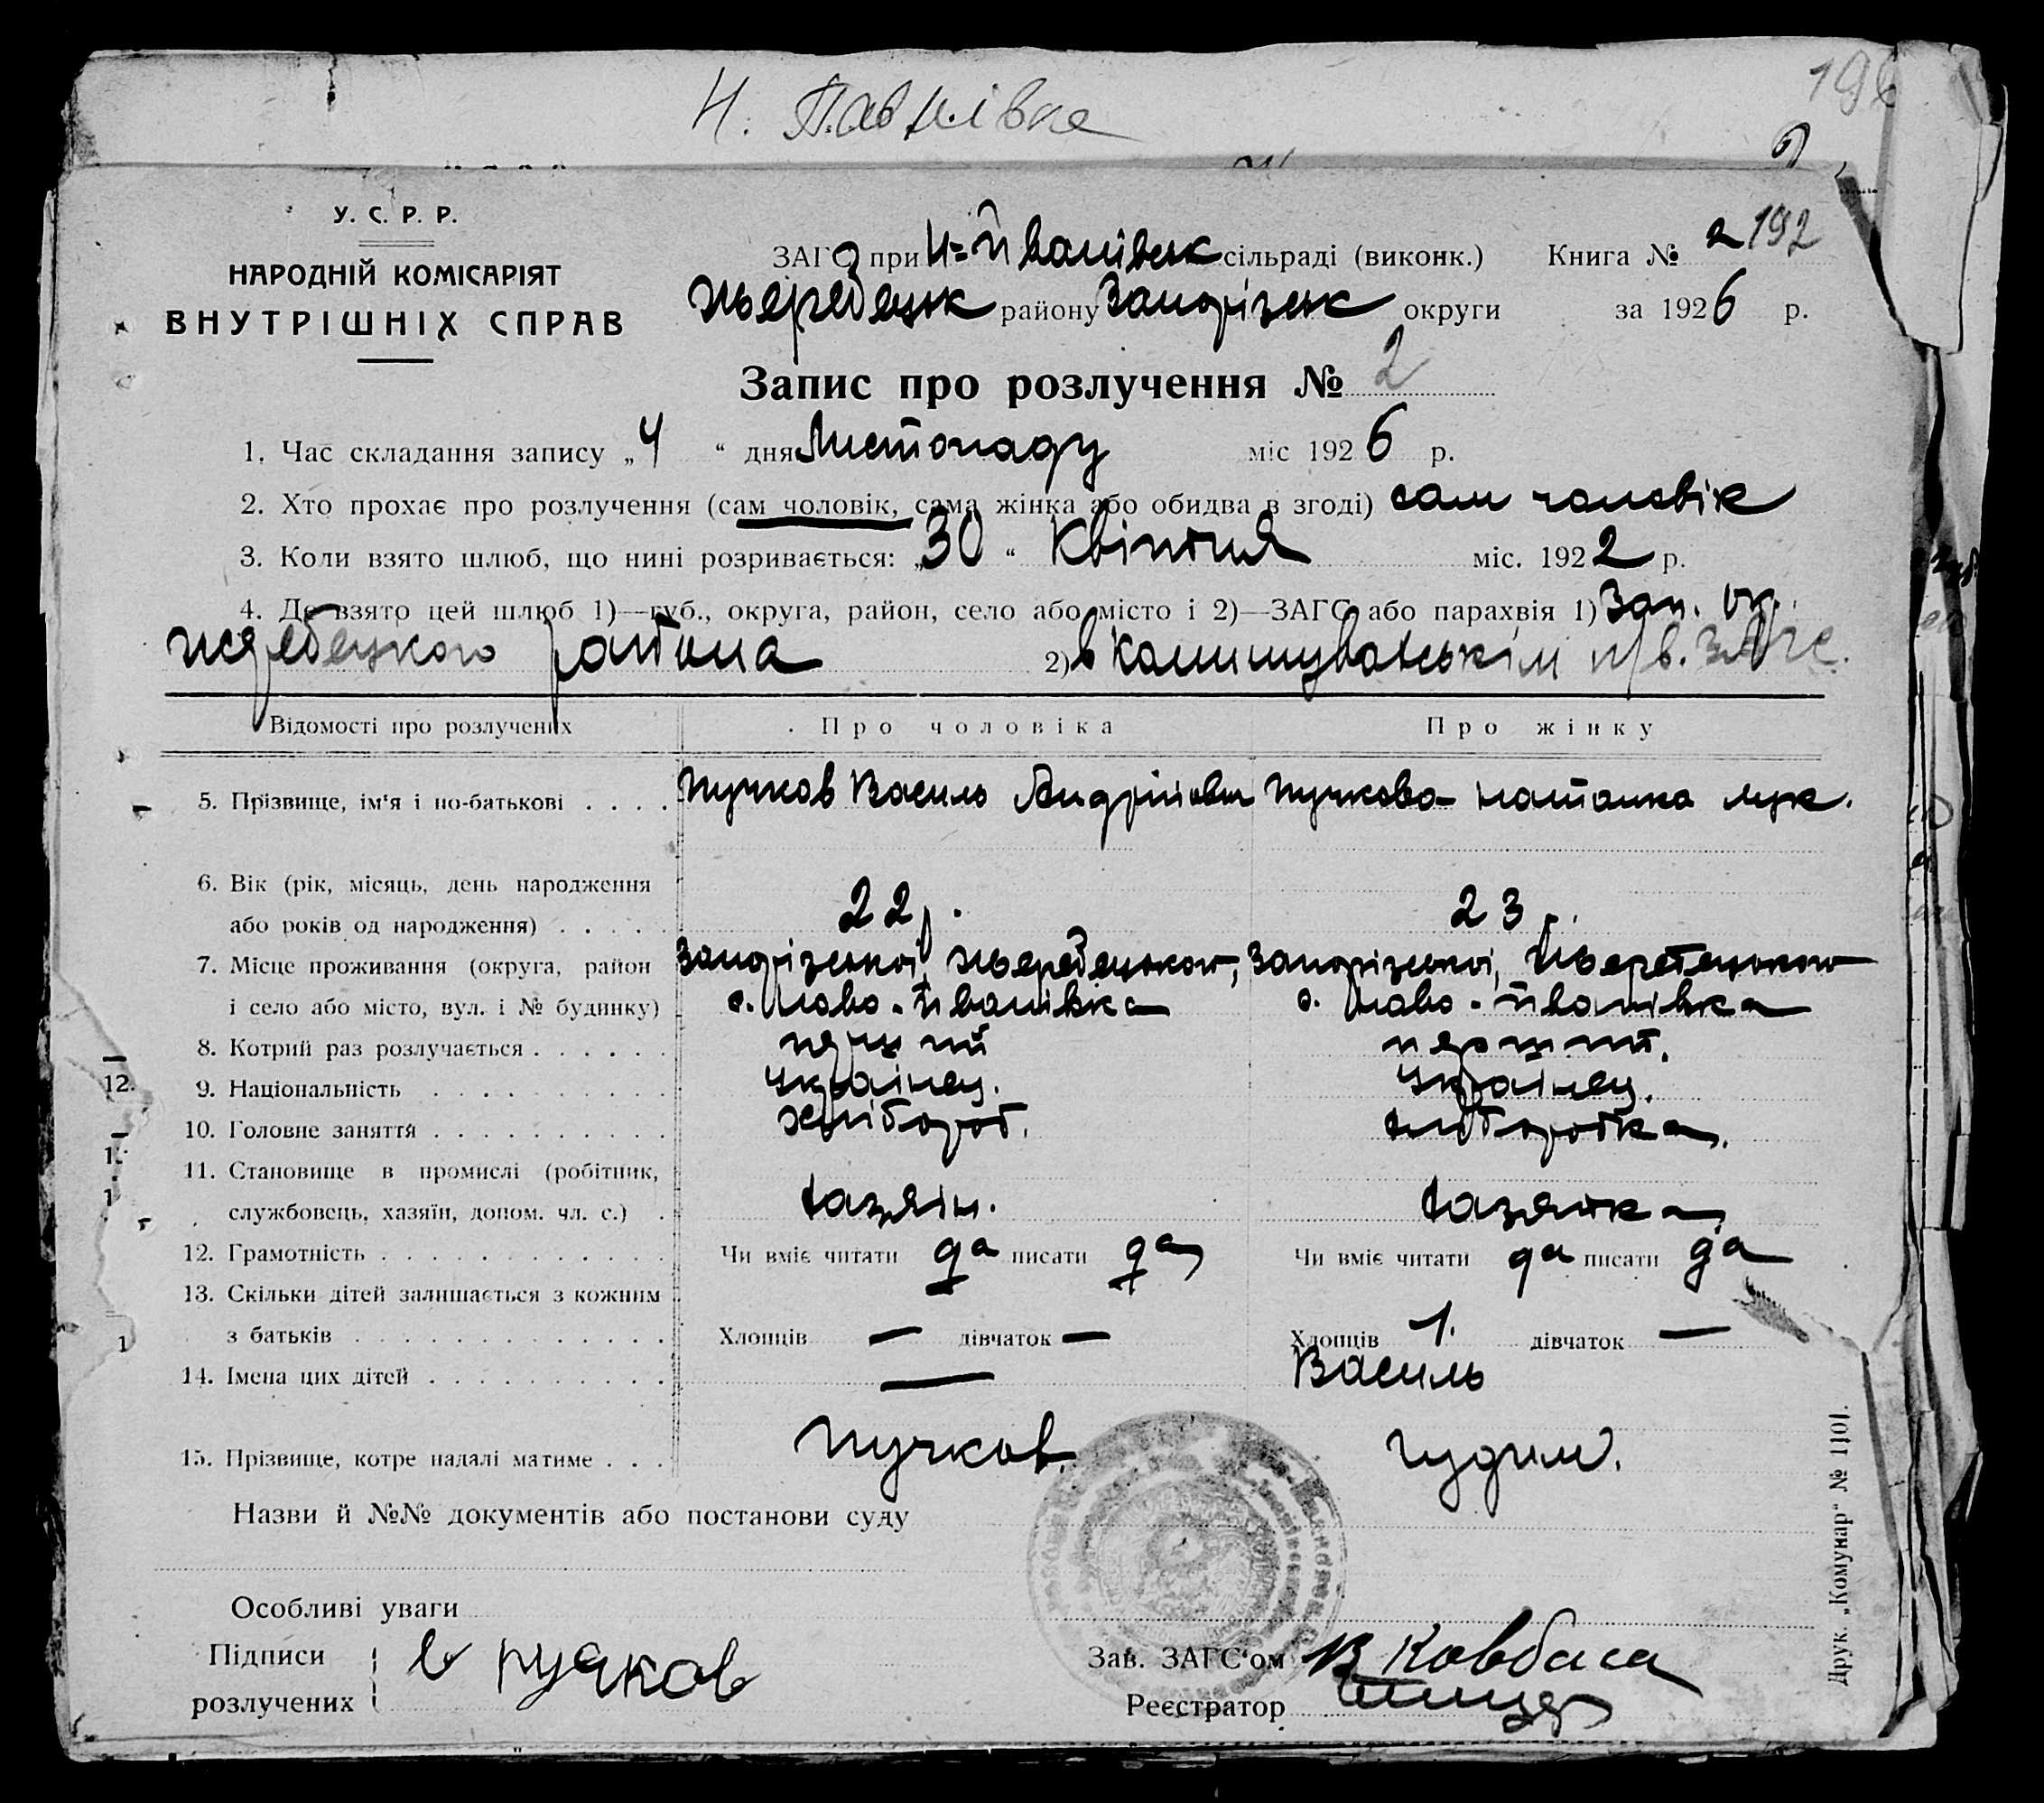 Н. Павлівка
У. С. Р. Р.
НАРОДНІЙ КОМІСАРІЯТ
ВНУТРІШНІХ СПРАВ
ЗАГС при Н=Иванівськ сільраді (виконк.) Книга № 192
Жеребецьк району Запорізськ округи за 1926 р.
Запис про розлучення № 2
1. Час складання запису „4“ дня Листопаду міс 1926 р.
2. Хто прохає про розлучення (сам чоловік, сама жінка або обидва в згоді) сам чоловік
3. Коли взято шлюб, що нині розривається: „30“ Квітня міс. 1922 р.
4. Де взято цей шлюб 1)—губ., округа, район, село або місто і 2)—ЗАГС або парахвія 1) Зап. ок.
жеребецкого района 2) в Комишуваськім ЗАГС.
Відомості про розлучених Про чоловіка Про жінку
5. Прізвище, ім'я і по-батькові . . . . Пучков Василь Андрійович Пучкова Наталка Лук.
6. Вік (рік, місяць, день народження
або років од народження) . . . . . 22 р. 23 р.
7. Місце проживання (округа, район Запорізської, Жеребецького, Запорізської, Жеребецького
і село або місто, вул. і № будинку) с. Ново-Иванівка с. Ново-Иванівка
8. Котрий раз розлучається . . . . . . перший перший.
9. Національність . . . . . . . . . . українец. українец.
10. Головне заняття . . . . . . . . . . хлібороб. хліборобка.
11. Становище в промислі (робітник,
службовець, хазяїн, допом. чл. с.) . хазяїн. хазяйка
12. Грамотність . . . . . . . . . . . . Чи вміє читати да писати да Чи вміє читати да писати да
13. Скільки дітей залишається з кожним
з батьків . . . . . . . . . . . . . Хлопців — дівчаток — Хлопців 1. дівчаток —
14. Імена цих дітей . . . . . . . . . . — Василь
15. Прізвище, котре надалі матиме . . . Пучков. Гудим.
Назви й №№ документів або постанови суду
Особливі уваги
Підписи
розлучених
В Пучков
Зав. ЗАГС'ом В Ковбаса
Реєстратор
Друк. „Комунар“ № 1101.